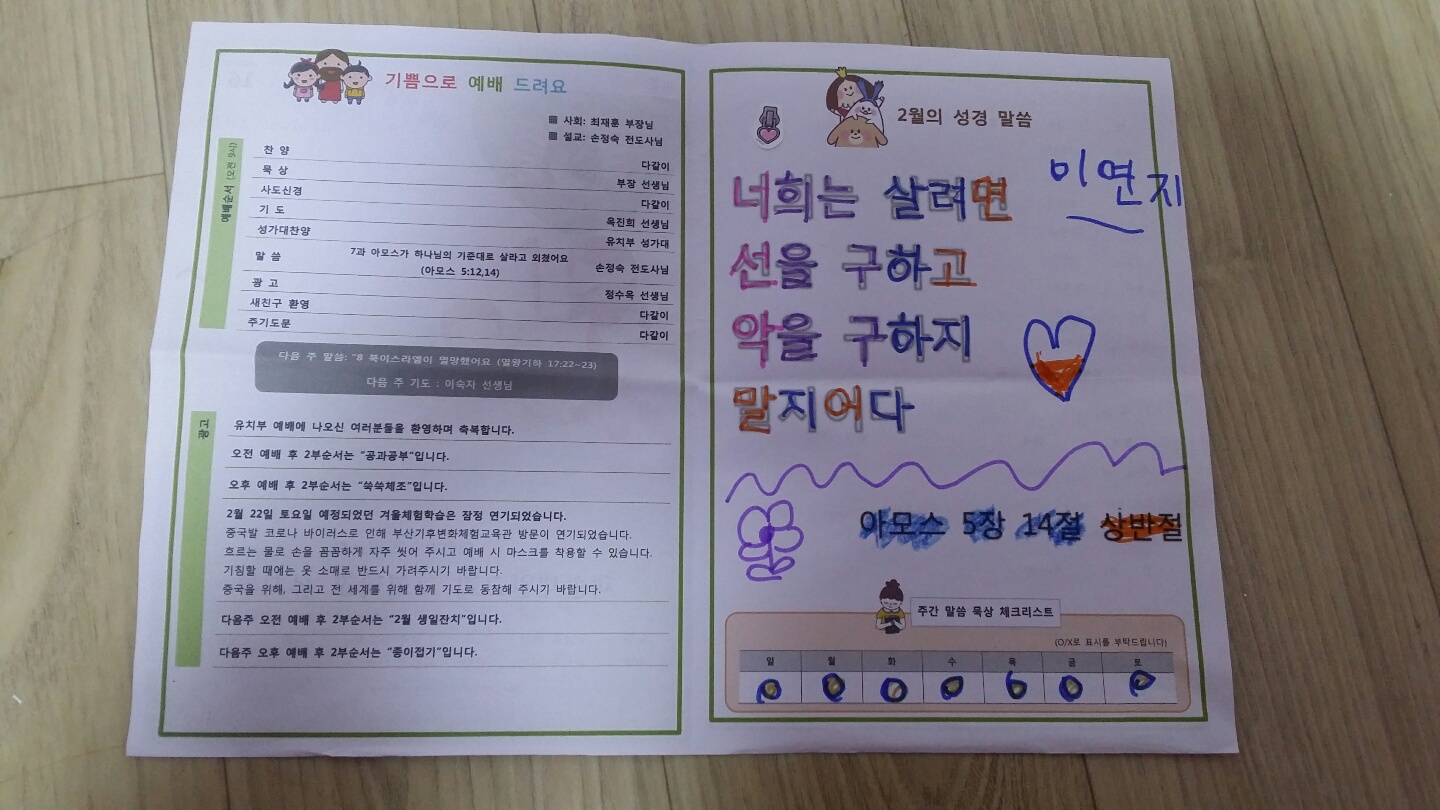 기쁨으로 예배 드려요
사회: 최재훈 부장님
설교: 손정숙 전도사님
예배순서 (오전 9시)
찬 양 다같이
묵 상 부장 선생님
사도신경 다같이
기 도 옥진희 선생님
성가대찬양 유치부 성가대
말 씀 7과 아모스가 하나님의 기준대로 살라고 외쳤어요 손정숙 전도사님
(아모스 5:12,14)
광 고 정수옥 선생님
새친구 환영 다같이
주기도문 다같이
다음 주 말씀: "8 북이스라엘이 멸망했어요 (열왕기하 17:22~23)
다음 주 기도 : 이숙자 선생님
광고
유치부 예배에 나오신 여러분들을 환영하며 축복합니다.
오전 예배 후 2부순서는 "공과공부"입니다.
오후 예배 후 2부순서는 "쑥쑥체조"입니다.
2월 22일 토요일 예정되었던 겨울체험학습은 잠정 연기되었습니다.
중국발 코로나 바이러스로 인해 부산기후변화체험교육관 방문이 연기되었습니다.
흐르는 물로 손을 꼼꼼하게 자주 씻어 주시고 예배 시 마스크를 착용할 수 있습니다.
기침할 때에는 옷 소매로 반드시 가려주시기 바랍니다.
중국을 위해, 그리고 전 세계를 위해 함께 기도로 동참해 주시기 바랍니다.
다음주 오전 예배 후 2부순서는 "2월 생일잔치"입니다.
다음주 오후 예배 후 2부순서는 "종이접기"입니다.
2월의 성경 말씀
이연지
너희는 살려면
선을 구하고
악을 구하지
말지어다
아모스 5장 14절 상반절
주간 말씀 묵상 체크리스트
(O/X로 표시를 부탁드립니다)
일 월 화 수 목 금 토
O O O O O O O